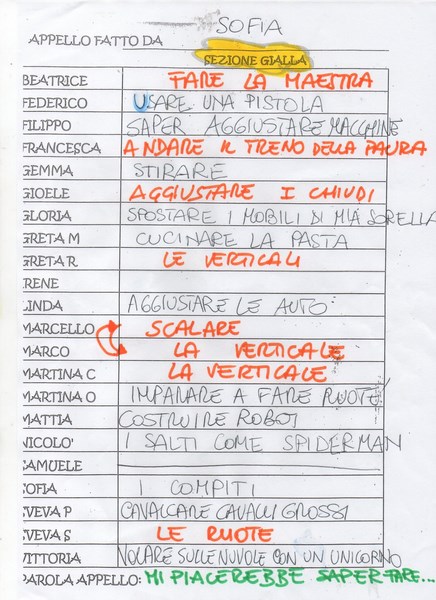 SOFIA
APPELLO FATTO DA
SEZIONE GIALLA
BEATRICE FARE LA MAESTRA
FEDERICO USARE UNA PISTOLA
FILIPPO SAPER AGGIUSTARE MACCHINE
FRANCESCA ANDARE IL TRENO DELLA PAURA
GEMMA STIRARE
GIOELE AGGIUSTARE I CHIUDI
GLORIA SPOSTARE I MOBILI DI MIA SORELLA
GRETA M CUCINARE LA PASTA
GRETA R LE VERTICALI
IRENE
LINDA AGGIUSTARE LE AUTO
MARCELLO SCALARE
MARCO LA VERTICALE
MARTINA C LA VERTICALE
MARTINA O IMPARARE A FARE RUOTE
MATTIA COSTRUIRE ROBOT
NICOLO' I SALTI COME SPIDERMAN
SAMUELE
SOFIA I COMPITI
SVEVA P CAVALCARE CAVALLI GROSSI
SVEVA S LE RUOTE
VITTORIA VOLARE SULLE NUVOLE CON UN UNICORNO
PAROLA APPELLO: MI PIACEREBBE SAPER FARE...